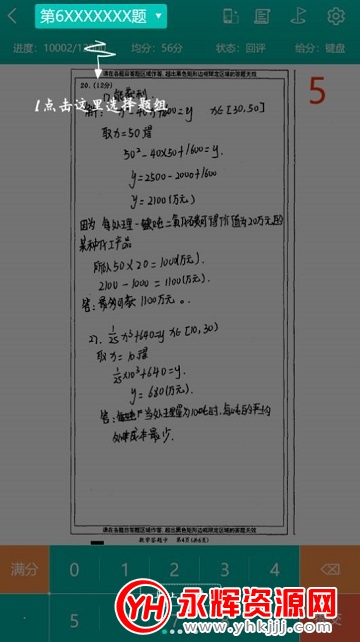 第6XXXXXXX题
进度：10002/12000 均分：56分 状态：回评 给分：键盘
请在各题目答题区域作答，超出黑色矩形边框限定区域的答案无效
5
20.(12分)
1点击这里选择题组
取x=50得
50²-40×50+1600=y.
y=2500-2000+1600
y=2100(万元)
因为 每处理一吨二氧化碳可得价值为20万元的
某种化工产品
所以 50×20=1000(万元).
2100-1000=1100(万元).
答：最少亏损1100万元。
2). 1/25 x³+640=y x∈[10,30)
取x=10得
1/25×10³+640=y.
y=680(万元).
处理成本最少.
请在各题目答题区域作答，超出黑色矩形边框限定区域的答案无效
数学答题卡 第4页(共6页)
满分 0 1 2 3 4
5
YH 永辉资源网
www.yhkjjj.com